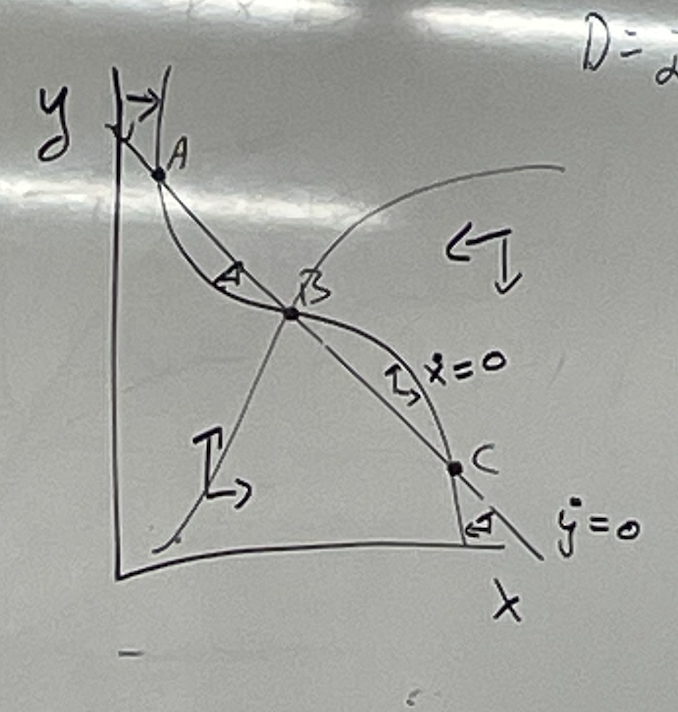 D=
y
A
B
ẋ=0
C
ẏ=0
x